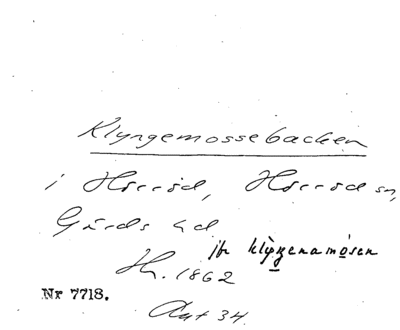 Klyngemossebacken
i Hörröd, Hörröd sn,
Gärds hd
jfr klyngenamosen
Hr. 1862
Nr 7718.
Ant 34.